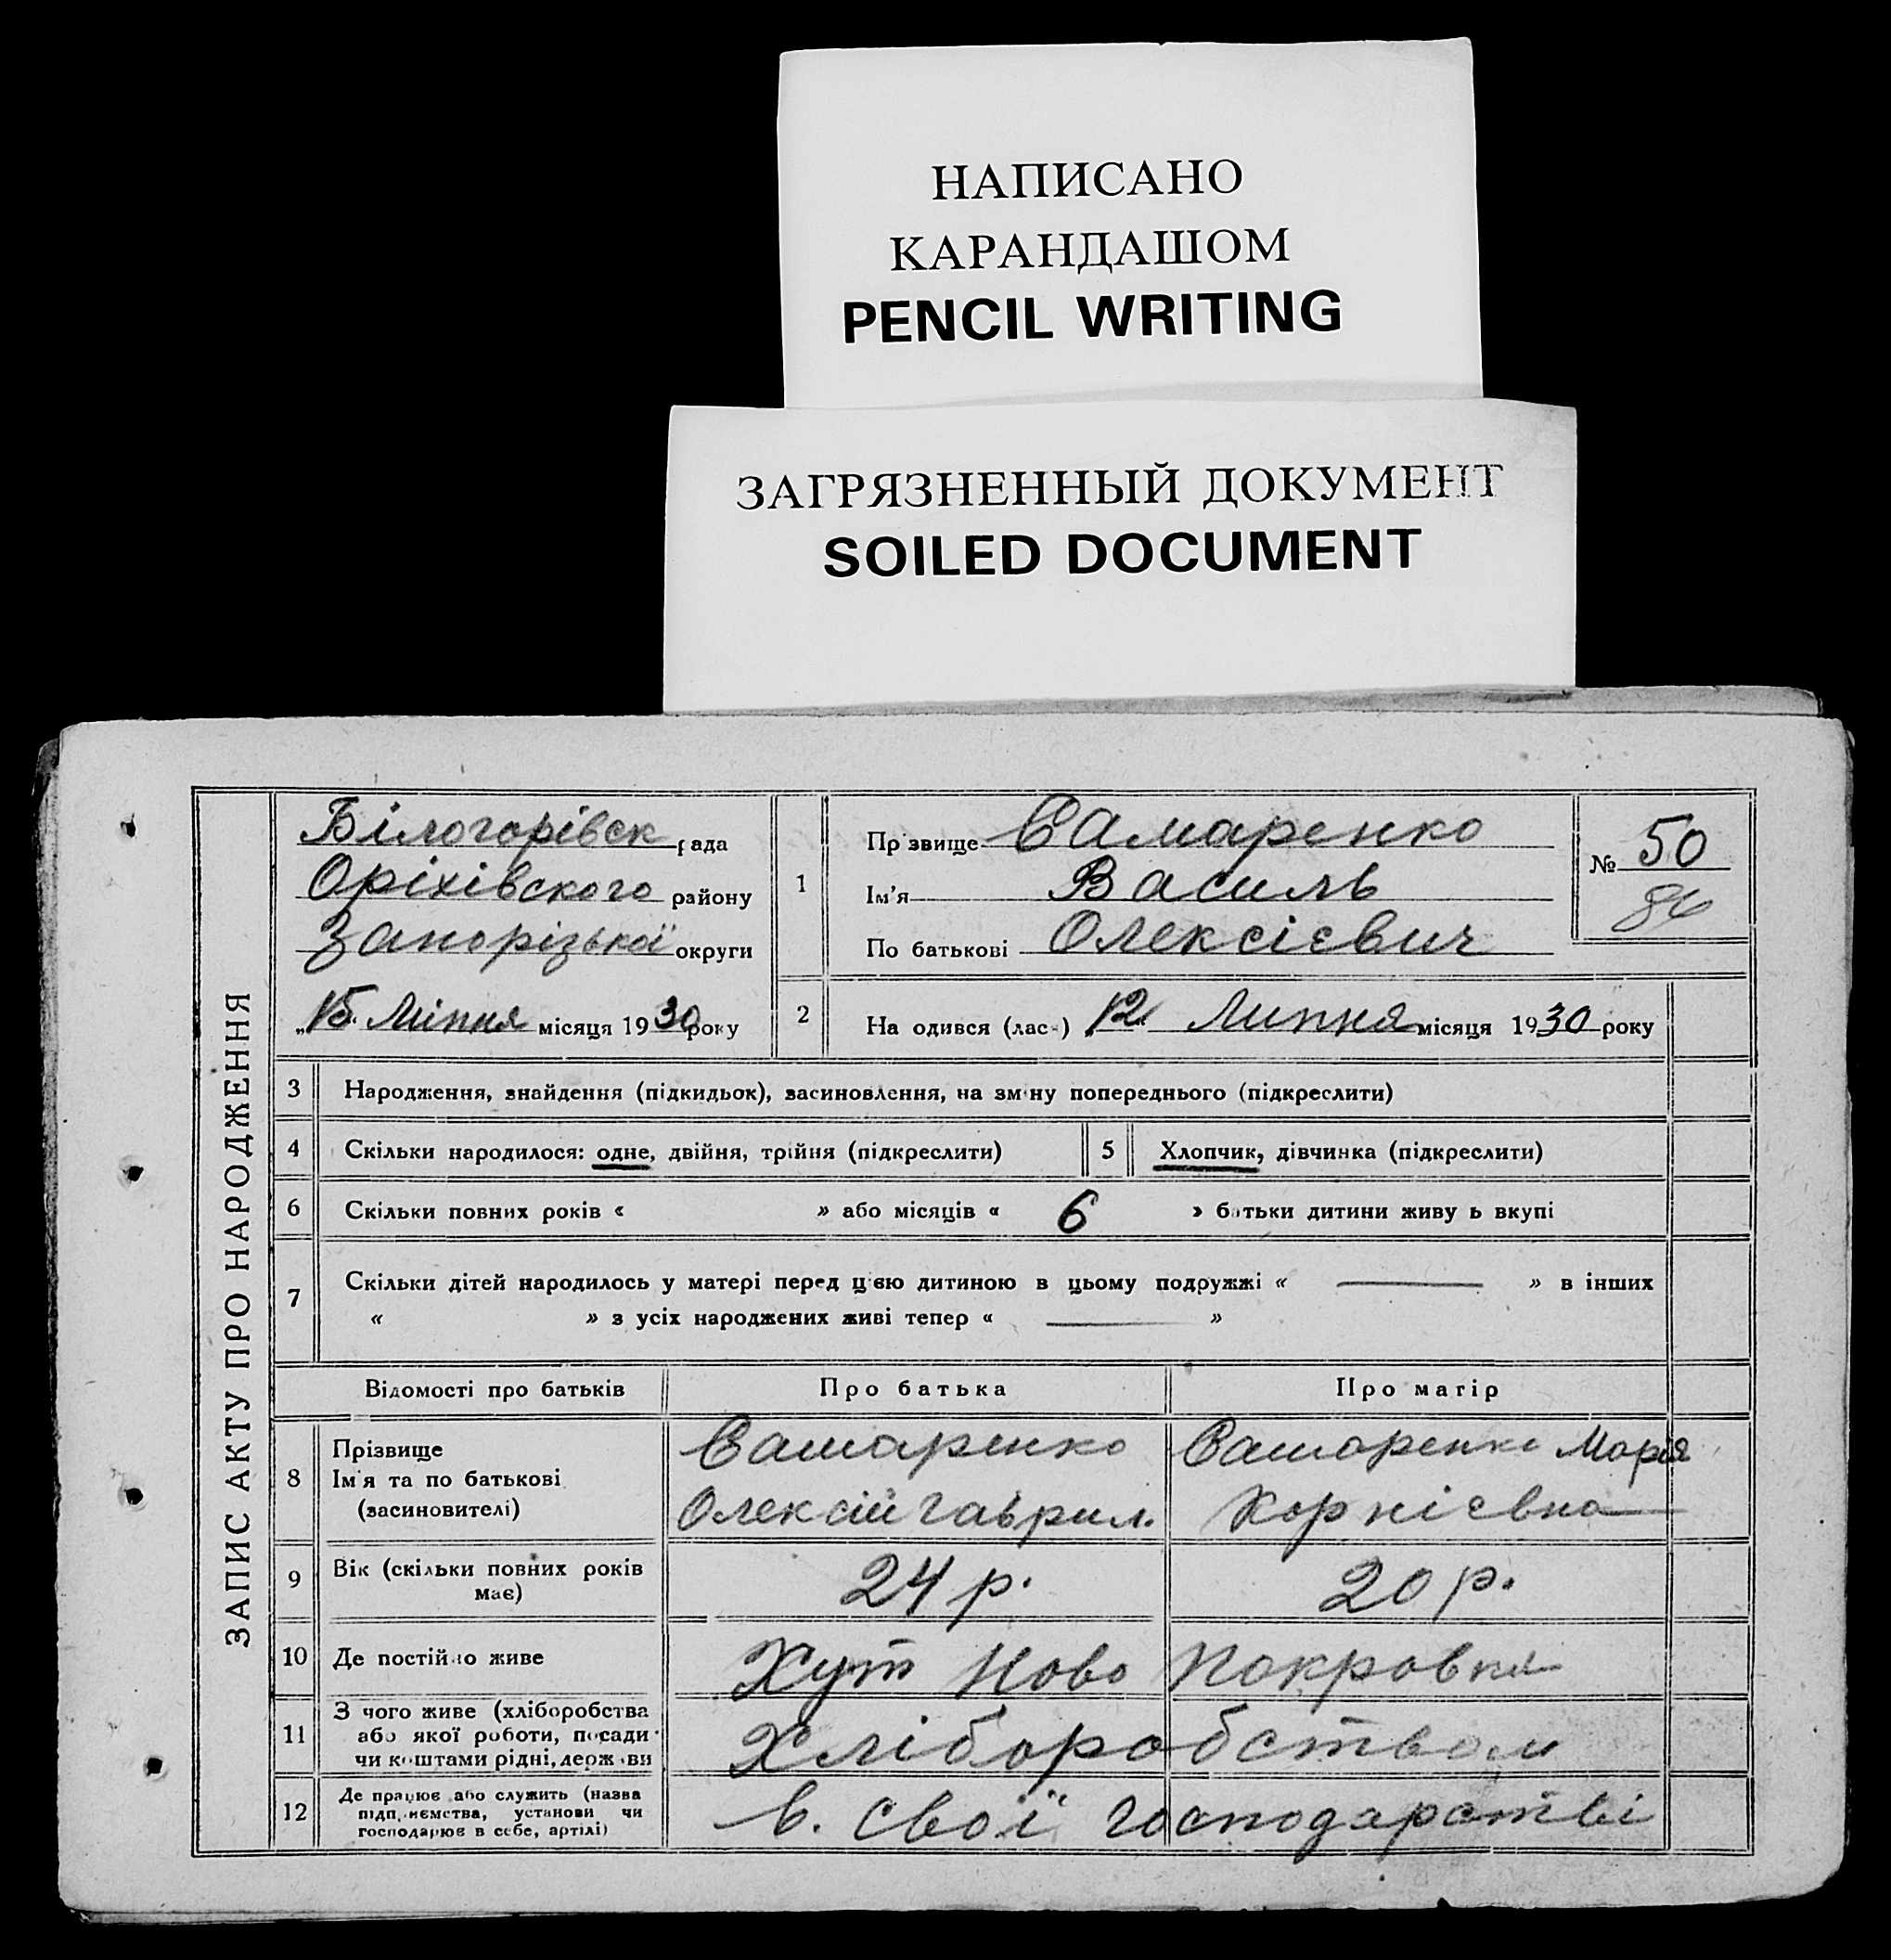 НАПИСАНО
КАРАНДАШОМ
PENCIL WRITING
ЗАГРЯЗНЕННЫЙ ДОКУМЕНТ
SOILED DOCUMENT
ЗАПИС АКТУ ПРО НАРОДЖЕННЯ
Білогорівск рада
Оріхівского району
Запорізької округи
„15“ Липня місяця 1930 року
1
Прізвище Самаренко
Ім'я Василь
По батькові Олексієвич
№ 50
86
2 На одився (лась) 12 Липня місяця 1930 року
3 Народження, знайдення (підкидьок), засиновлення, на зміну попереднього (підкреслити)
4 Скільки народилося: одне, двійня, трійня (підкреслити) 5 Хлопчик, дівчинка (підкреслити)
6 Скільки повних років « » або місяців « 6 » батьки дитини живу ь вкупі
7 Скільки дітей народилось у матері перед цією дитиною в цьому подружжі « — » в інших
« » з усіх народжених живі тепер « — »
Відомості про батьків Про батька Про матір
8 Прізвище
Ім'я та по батькові
(засиновителі)
Самаренко
Олексій Гаврил.
Самаренко Марія
Корнієвна
9 Вік (скільки повних років
має)
24 р. 20 р.
10 Де постійно живе Хут Ново Покровка
11 З чого живе (хліборобства
або якої роботи, посади
чи коштами рідні, держави
Хліборобством
12 Де працює або служить (назва
підприємства, установи чи
господарює в себе, артілі)
в. свої господарстві